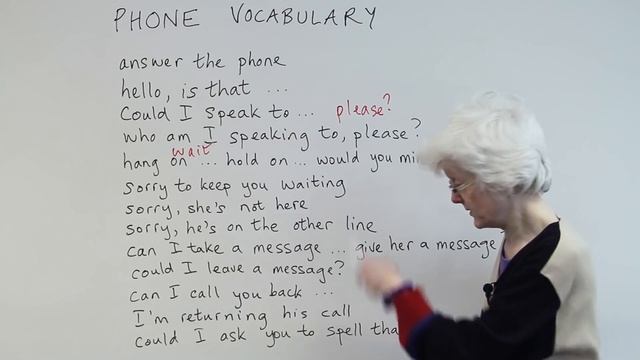 PHONE VOCABULARY
answer the phone
hello, is that ...
Could I speak to ... please?
who am I speaking to, please?
wait
hang on ... hold on ... would you
sorry to keep you waiting
sorry, she's not here
sorry, he's on the other line
can I take a message ... give her a message
could I leave a message?
can I call you back ...
I'm returning his call
Could I ask you to spell